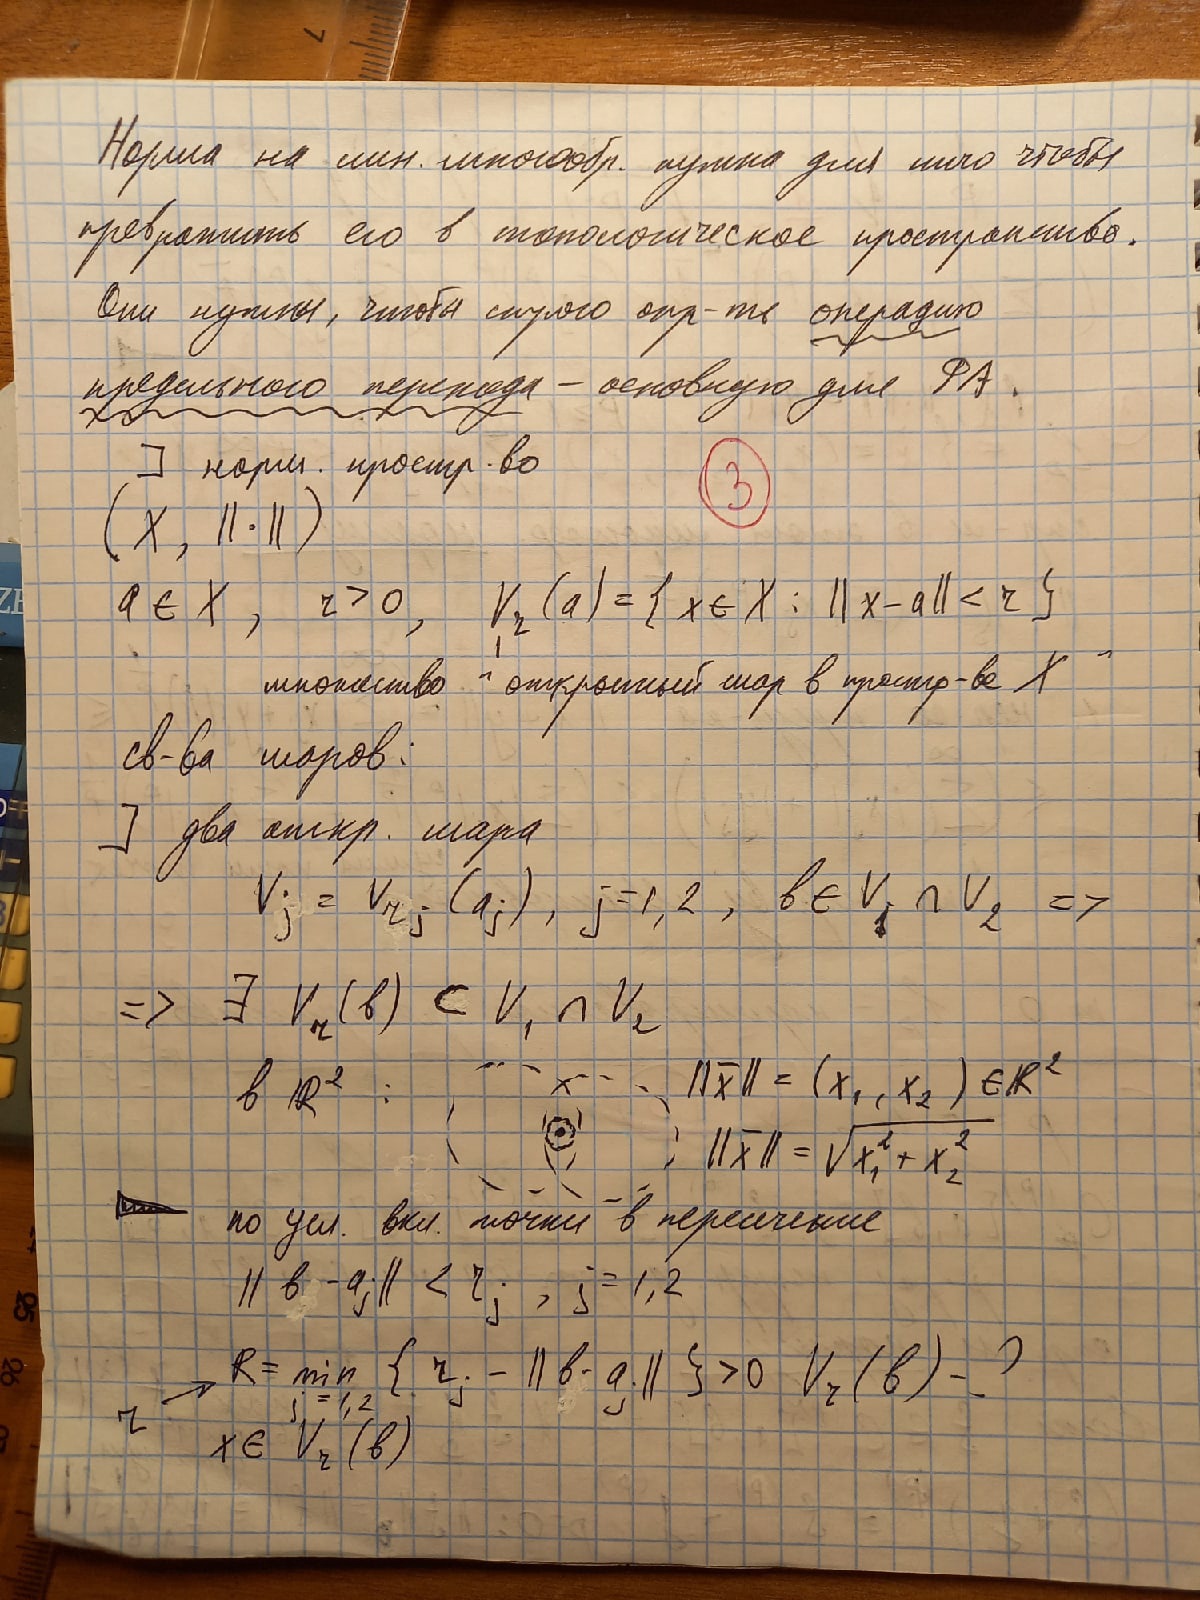 Норма на лин. многообр. нужна для того чтобы
превратить его в топологическое пространство.
Они нужны, чтобы строго опр-ть операцию
предельного перехода – основную для ФА.
] норм. простр-во
3
(X, ||·||)
a ∈ X, r > 0, V_r(a) = { x ∈ X : ||x-a|| < r }
множество "открытый шар в простр-ве X"
св-ва шаров:
] два откр. шара
V_j = V_{r_j}(a_j), j=1,2, b ∈ V_1 ∩ V_2 =>
=> ∃ V_r(b) ⊂ V_1 ∩ V_2
в ℝ² : ||x̄|| = (x_1, x_2) ∈ ℝ²
||x̄|| = √(x_1² + x_2²)
по усл. вкл. точки в пересечение
|| b - a_j || < r_j, j=1,2
R = min_{j=1,2} { r_j - ||b-a_j|| } > 0 V_r(b) - ?
r
x ∈ V_r(b)